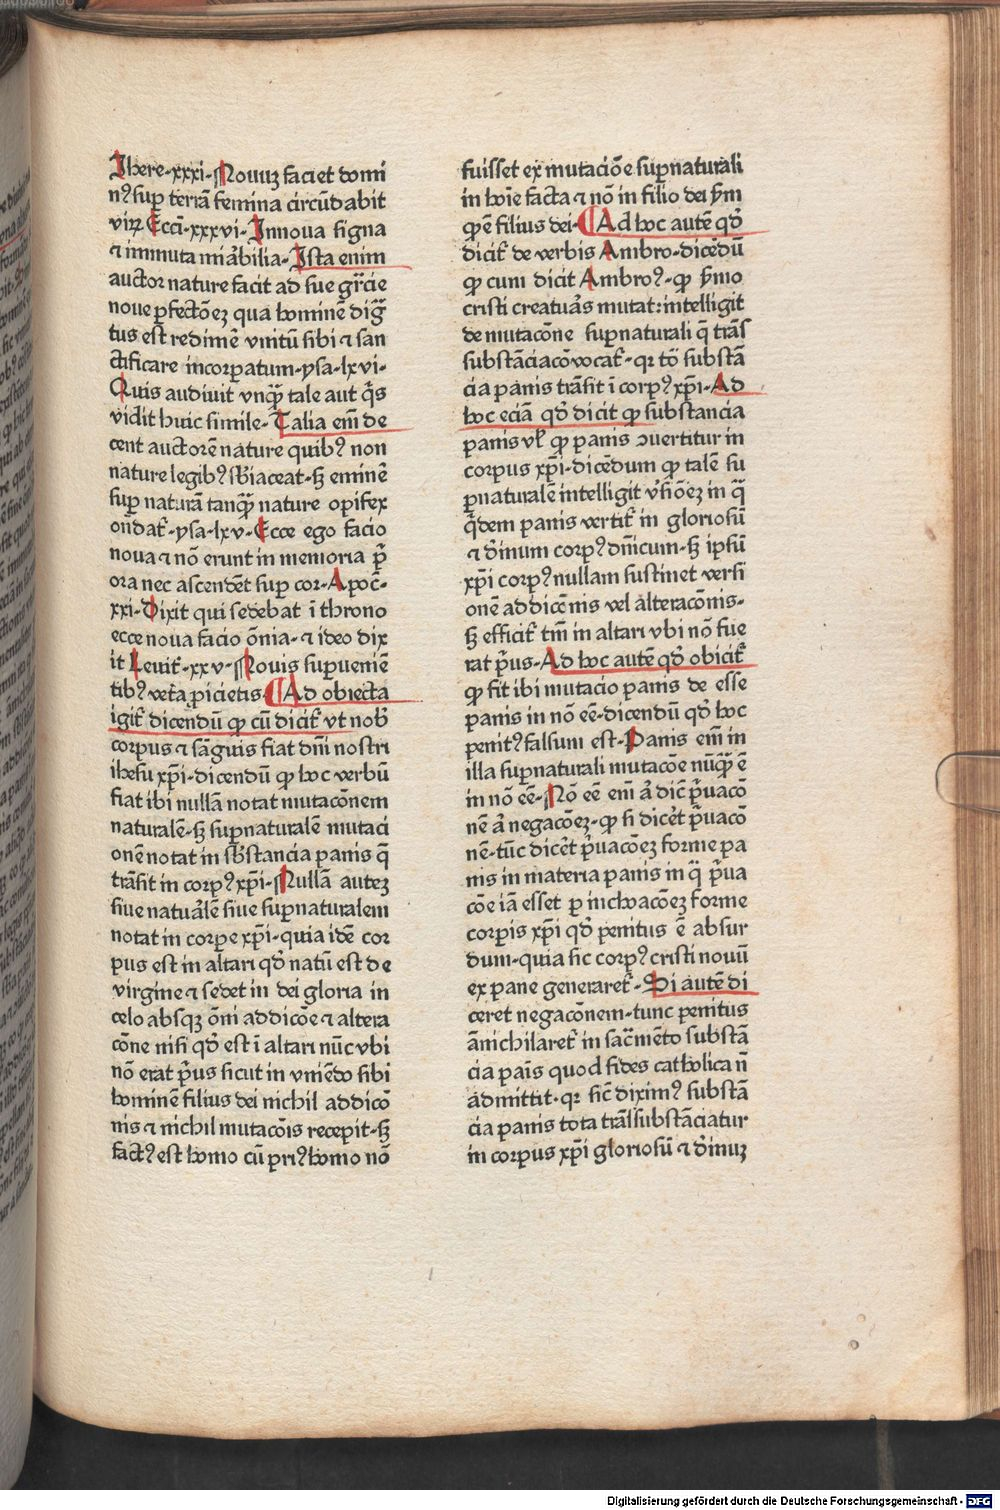 Ihere·xxxi·Nouuʒ faciet domi
nꝰ sup̱ terrā femina circūdabit
viꝝ Ecci̅·xxxvi·Innoua signa
⁊ immuta miābilia·Ista enim
auctor nature facit ad sue gr̅cie
noue ꝑfectōeʒ qua hominē dig̅
tus est redimē vnitū sibi ⁊ san
ctificare incorꝑatum·ysa·lxvi·
Quis audiuit vnqꝫ̅ tale aut q̅s
vidit huic simile·Talia em̅ de
cent auctorē nature quibꝰ non
nature legibꝰ sb̅iaceat·sꝫ eminē
sup̱ naturā tanqꝫ̅ nature opifex
on̅dat᷑·ysa·lxv·Ecce ego facio
noua ⁊ nō erunt in memoria p̅
ora nec ascendēt sup̱ cor·Apoc̅·
xxi·Dixit qui sedebat ī throno
ecce noua facio ōnia·⁊ ideo dix
it Leuit᷑·xxv·Nouis supueniē
tibꝰ vet̅a ꝓicietis·¶Ad obiecta
igit᷑ dicendū ꝙ cū dicit᷑ vt nob̅
corpus ⁊ sāguis fiat dn̅i nostri
ihesu xp̅i·dicendū ꝙ hoc verbū
fiat ibi nullā notat mutacōnem
naturalē·sꝫ suꝑnaturalē mutaci
onē notat in sb̅stancia panis q̅
trāsit in corpꝰ xp̅i·Nullā auteʒ
siue natuālē siue suꝑnaturalem
notat in corpe xp̅i·quia idē cor
pus est in altari qd̅ natū est de
virgine ⁊ sedet in dei gloria in
celo absqʒ ōni addicōe ⁊ altera
cōne nisi qd̅ est ī altari nūc vbi
nō erat p̅us sicut in vniēdo sibi
hominē filius dei nichil addicō
nis ⁊ nichil mutacōis recepit·sꝫ
factꝰ est homo cū priꝰ homo nō
fuisset ex mutaciōe suꝑnaturali
in hoīe facta ⁊ nō in filio dei ẜm
ꝙ ē filius dei·¶Ad hoc autē qd̅
dicit᷑ de verbis Ambro·dicēdū
ꝙ cum dicit Ambroꝰ·ꝙ ẜmo
cristi creatuās mutat:intelligit
de mutacōne suꝑnaturali q̅ trās
substāciacō vocat᷑·qꝛ to̅ substā
cia panis trāsit ī corpꝰ xp̅i·Ad
hoc eciā qd̅ dicit ꝙ substancia
panis vl̅ ꝙ panis ꝯuertitur in
corpus xp̅i·dicēdum ꝙ talē su
ꝑnaturalē intelligit ỽsiōeʒ in q̅
q̅dem panis vertit᷑ in gloriosū
⁊ diuinum corpꝰ dn̅icum·sꝫ ipsū
xp̅i corpꝰ nullam sustinet versi
onē addicōnis vel alteracōnis·
sꝫ efficit᷑ tm̅ in altari vbi nō fue
rat p̅us·Ad hoc autē qd̅ obicit᷑
ꝙ fit ibi mutacio panis de esse
panis in nō eē·dicendū qd̅ hoc
penitꝰ falsum est·Panis em̅ in
illa suꝑnaturali mutacōe nūqꝫ̅ ē
in nō eē·Nō eē em̅ a̅ dic̅ p̅uacō
nē a̅ negacōeʒ·ꝙ si dicēt p̅uacō
nē·tūc dicēt p̅uacōeʒ forme pa
nis in materia panis in q̅ p̅ua
cōe iā esset ꝑ inchoacōeʒ forme
corpis xp̅i qd̅ penitus ē absur
dum·quia sic corpꝰ cristi nouū
ex pane generaret᷑·Si autē di
ceret negacōnem·tunc penitus
ānichilaret᷑ in sac̅mēto substā
cia pan̅is quod fides catholica n̅
admittit·qꝛ sic̅ diximꝰ substā
cia panis tota trāsubstāciatur
in corpus xp̅i gloriosū ⁊ diuinuʒ
Digitalisierung gefördert durch die Deutsche Forschungsgemeinschaft - DFG